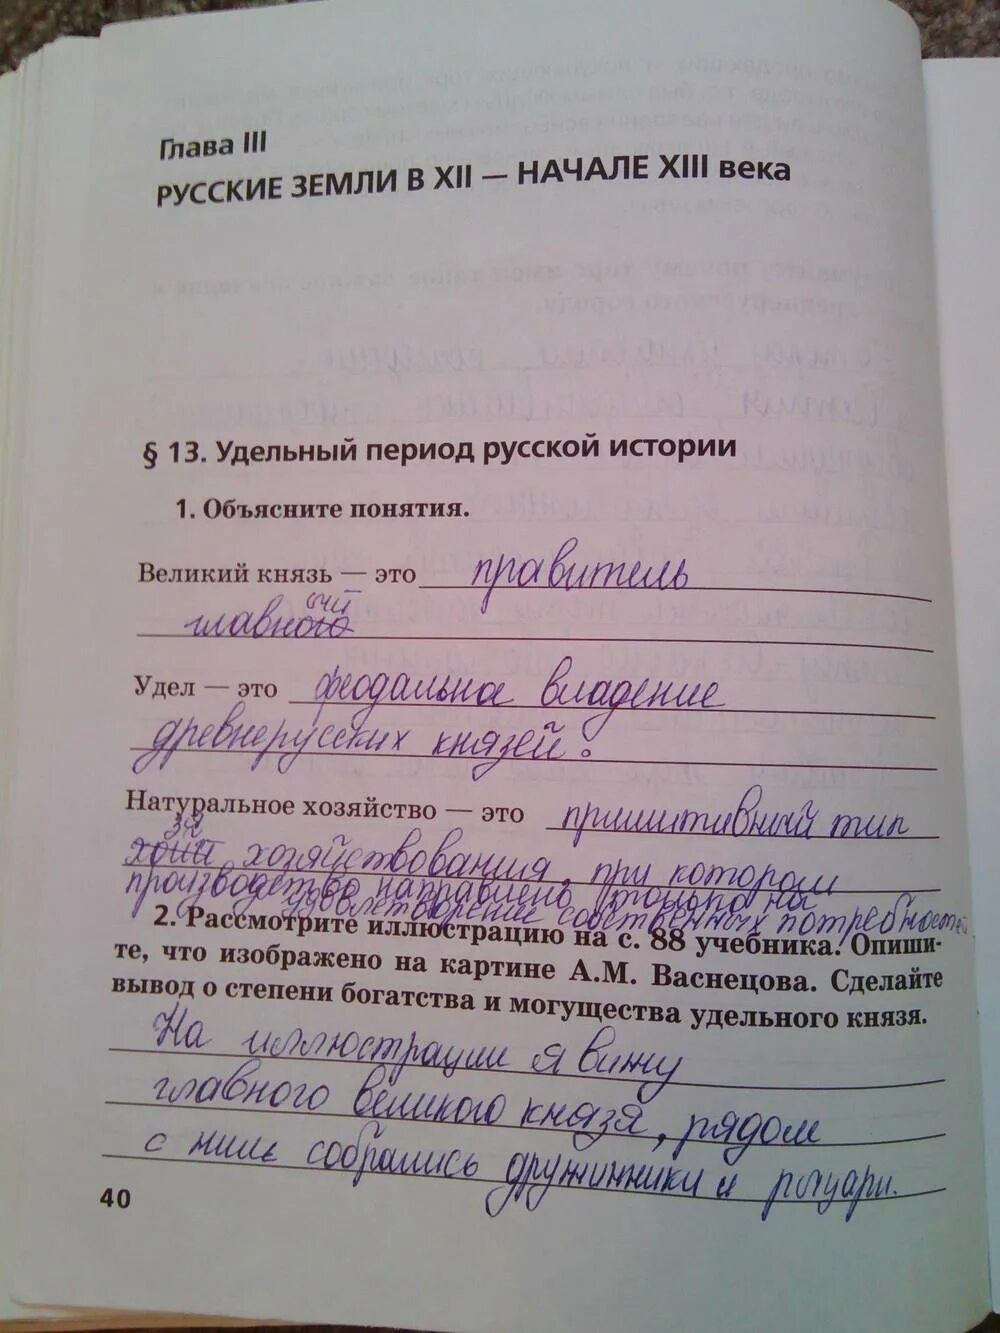 Глава III
РУССКИЕ ЗЕМЛИ В XII — НАЧАЛЕ XIII века
§ 13. Удельный период русской истории
1. Объясните понятия.
Великий князь — это правитель
ый
главного
Удел — это феодальное владение
древнерусских князей.
Натуральное хозяйство — это примитивный тип
хозяйствования, при котором
производство направлено только на
удовлетворение собственных потребностей
2. Рассмотрите иллюстрацию на с. 88 учебника. Опиши-
те, что изображено на картине А.М. Васнецова. Сделайте
вывод о степени богатства и могущества удельного князя.
На иллюстрации я вижу
главного великого князя, рядом
с ним собрались дружинники и рыцари.
40